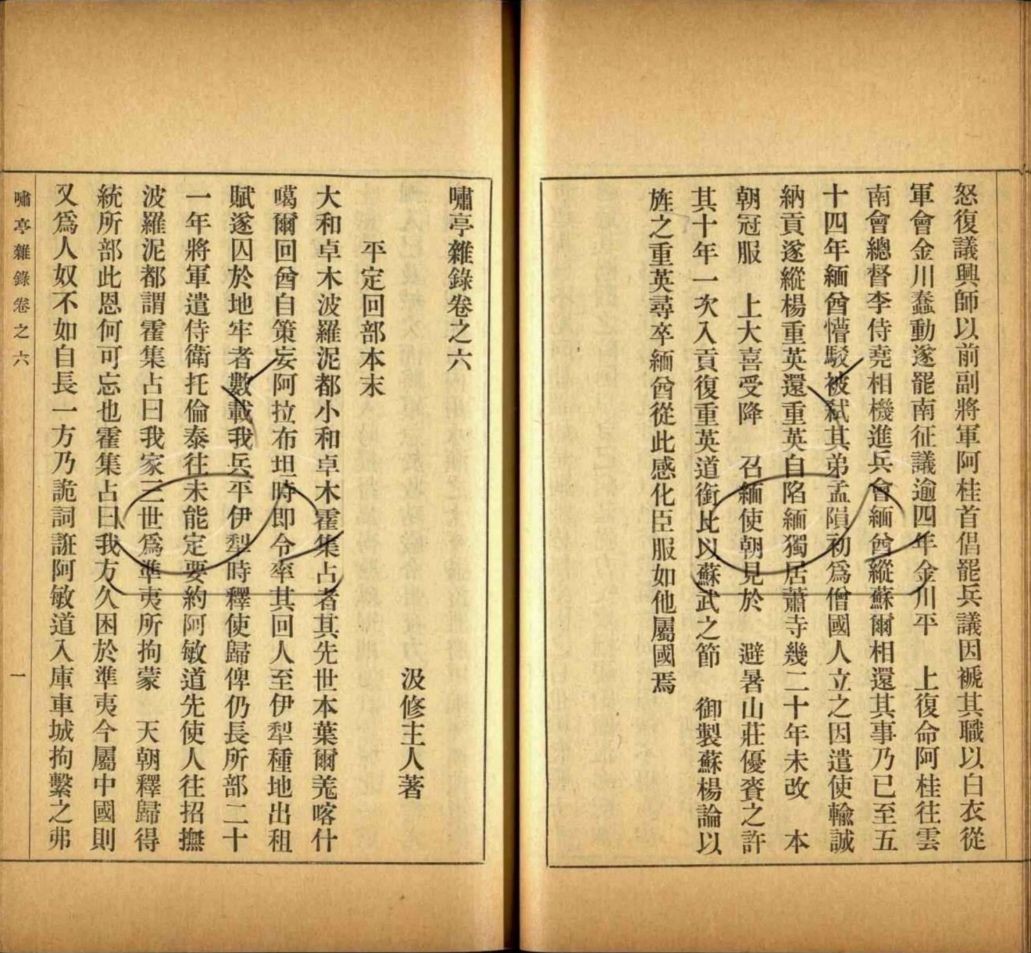 怒復議興師以前副將軍阿桂首倡罷兵議因褫其職以白衣從
軍會金川蠢動遂罷南征議逾四年金川平　上復命阿桂往雲
南會總督李侍堯相機進兵會緬酋縱蘇爾相還其事乃已至五
十四年緬酋懵駁被弒其弟孟隕初爲僧國人立之因遣使輸誠
納貢遂縱楊重英還重英自陷緬獨居蕭寺幾二十年未改　本
朝冠服　上大喜受降　召緬使朝見於　避暑山莊優賚之許
其十年一次入貢復重英道銜比以蘇武之節　御製蘇楊論以
旌之重英尋卒緬酋從此感化臣服如他屬國焉
嘯亭雜錄卷之六
汲修主人著
平定回部本末
大和卓木波羅泥都小和卓木霍集占者其先世本葉爾羌喀什
噶爾回酋自策妄阿拉布坦時即令率其回人至伊犁種地出租
賦遂囚於地牢者數載我兵平伊犁時釋使歸俾仍長所部二十
一年將軍遣侍衛托倫泰往未能定要約阿敏道先使人往招撫
波羅泥都謂霍集占曰我家三世爲準夷所拘蒙　天朝釋歸得
統所部此恩何可忘也霍集占曰我方久困於準夷今屬中國則
又爲人奴不如自長一方乃詭詞誑阿敏道入庫車城拘繫之弗
嘯亭雜錄卷之六
一